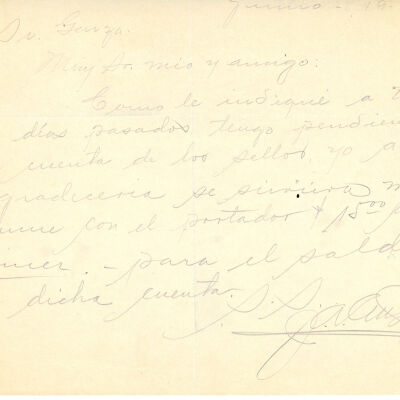 Junio - 19
Sr. Garza.
Muy Sr. mio y amigo:
Como le indiqué a
días pasados, tengo pendien
cuenta de los sellos, yo a
gradeceria se sirviera m
con el portador $ 15.00
para el sald
dicha cuenta.
S. S.